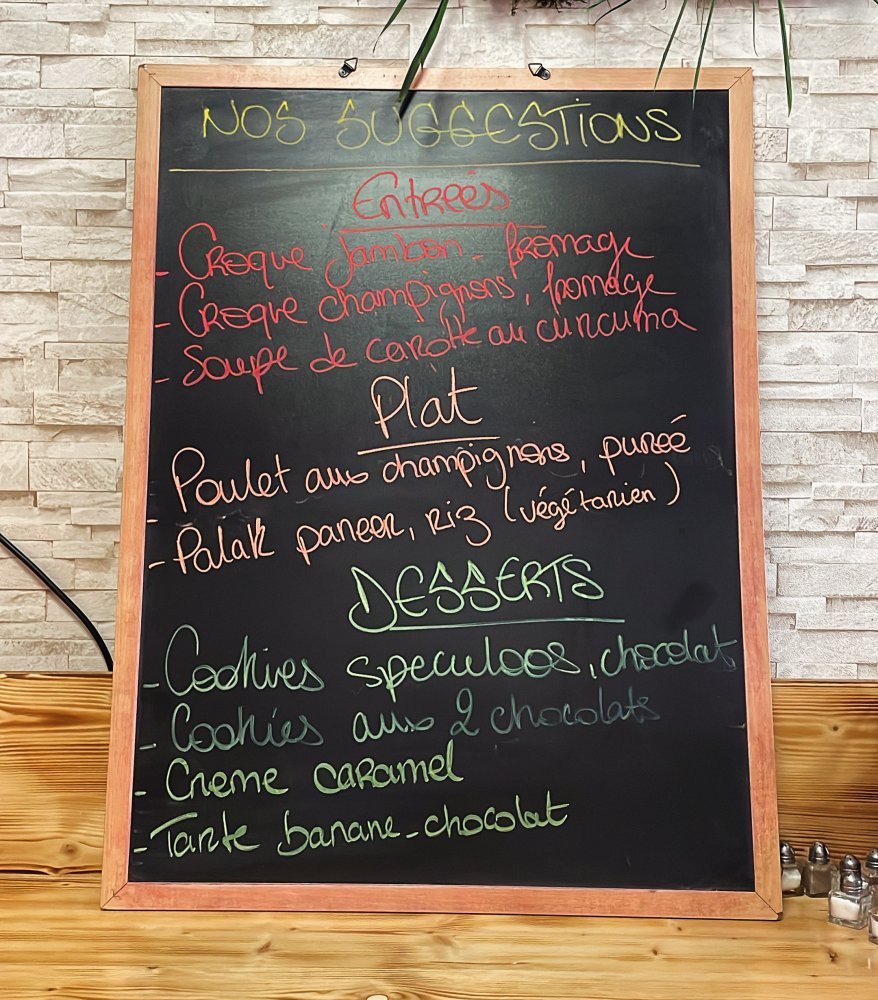 NOS SUGGESTIONS
Entrées
- Croque jambon - fromage
- Croque champignons, fromage
- Soupe de carotte au curcuma
Plat
- Poulet aux champignons, purée
- Palak paneer, riz (végétarien)
DESSERTS
- Cookies speculoos, chocolat
- Cookies aux 2 chocolats
- Creme caramel
- Tarte banane - chocolat